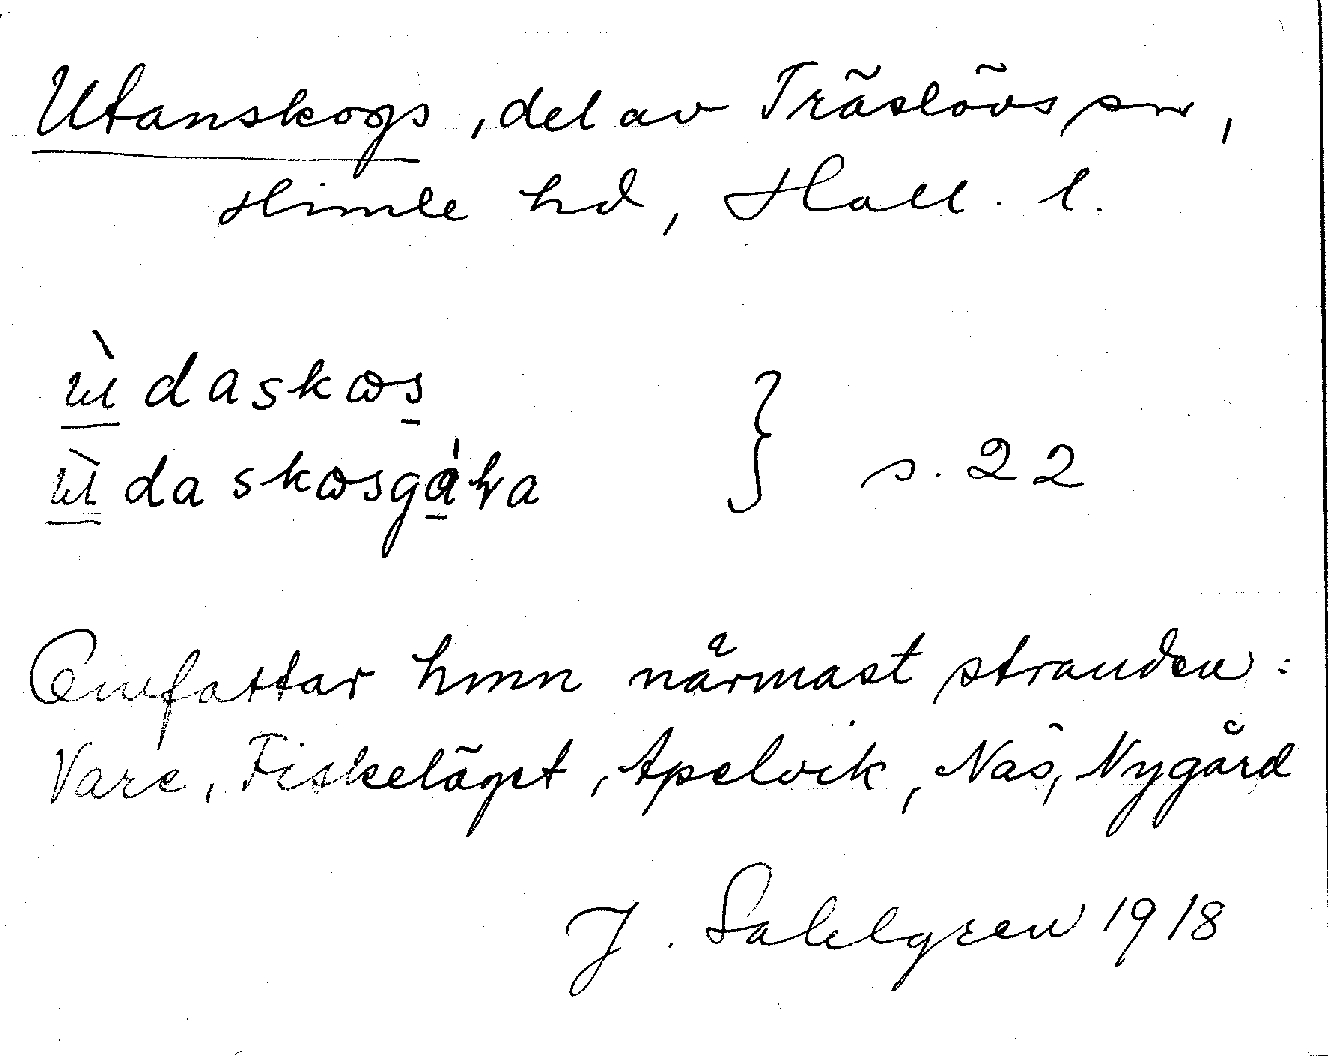 Utanskogs, del av Träslövs sn,
Himle hd, Hall. l.
ùdaskꝏs
ùdaskꝏsgára
} s. 22
Omfattar hmn närmast stranden:
Vare, Fiskeläget, Apelvik, Näs, Nygård
J. Sahlgren 1918